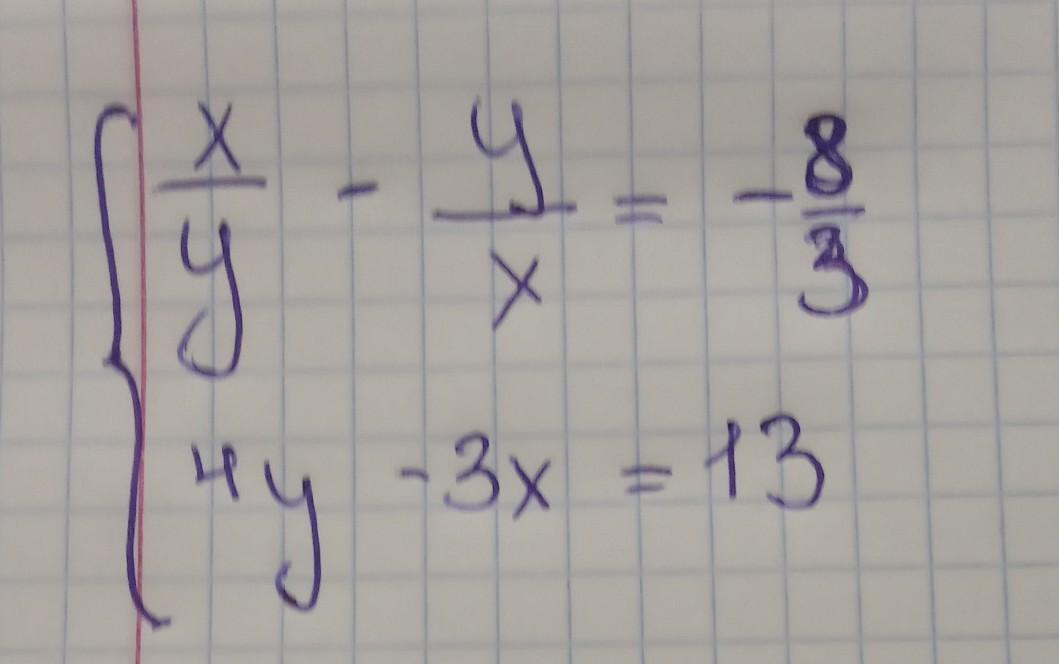 x/y - y/x = -8/3
4y -3x = 13